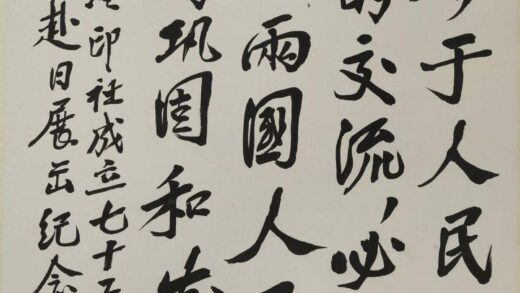 于人民
的交流，必
兩國人
巩固和发
泠印社成立七十五
赴日展出纪念